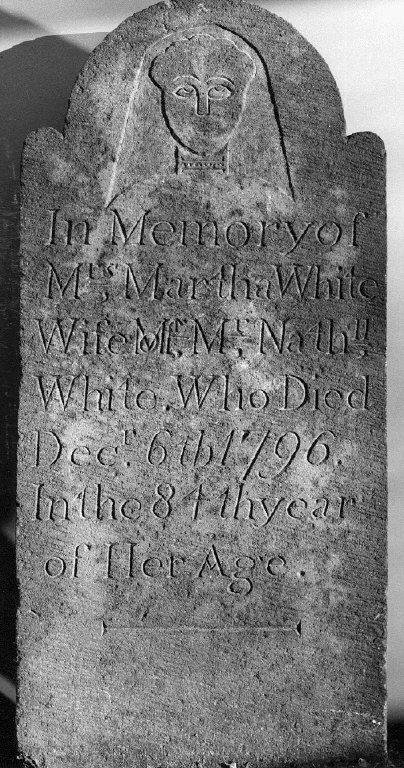 In Memory of
Mrs, Martha White
Wife of Mr, Nathll,
White. Who Died
Decr. 6th 1796.
In the 84th year
of Her Age.